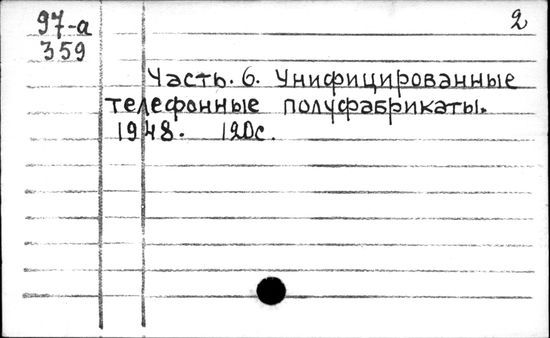 97-а
359
2
Часть. 6. Унифицированные
телефонные полуфабрикаты.
1948. 120с.